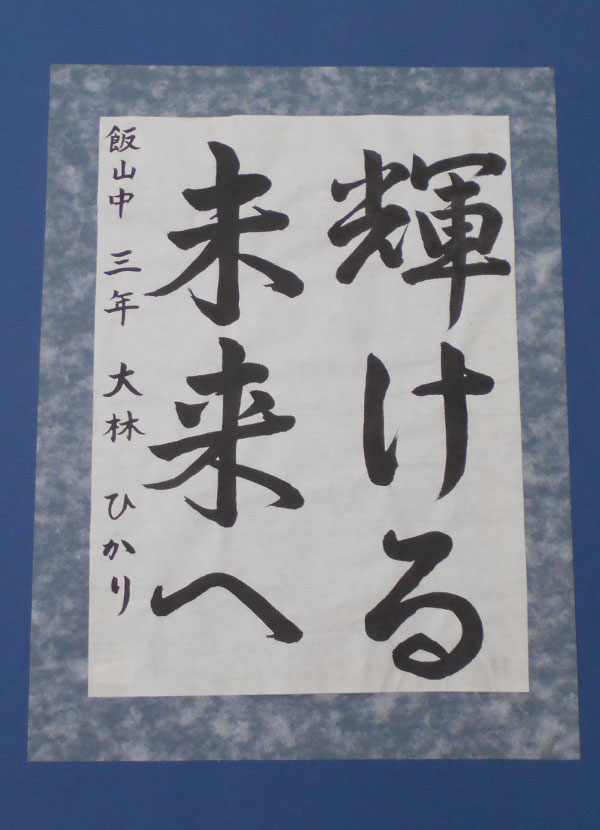 輝ける
未来へ
飯山中 三年 大林 ひかり